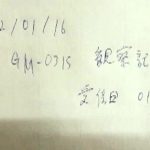 2/01/16
GM-031S 観察記
受信日 01